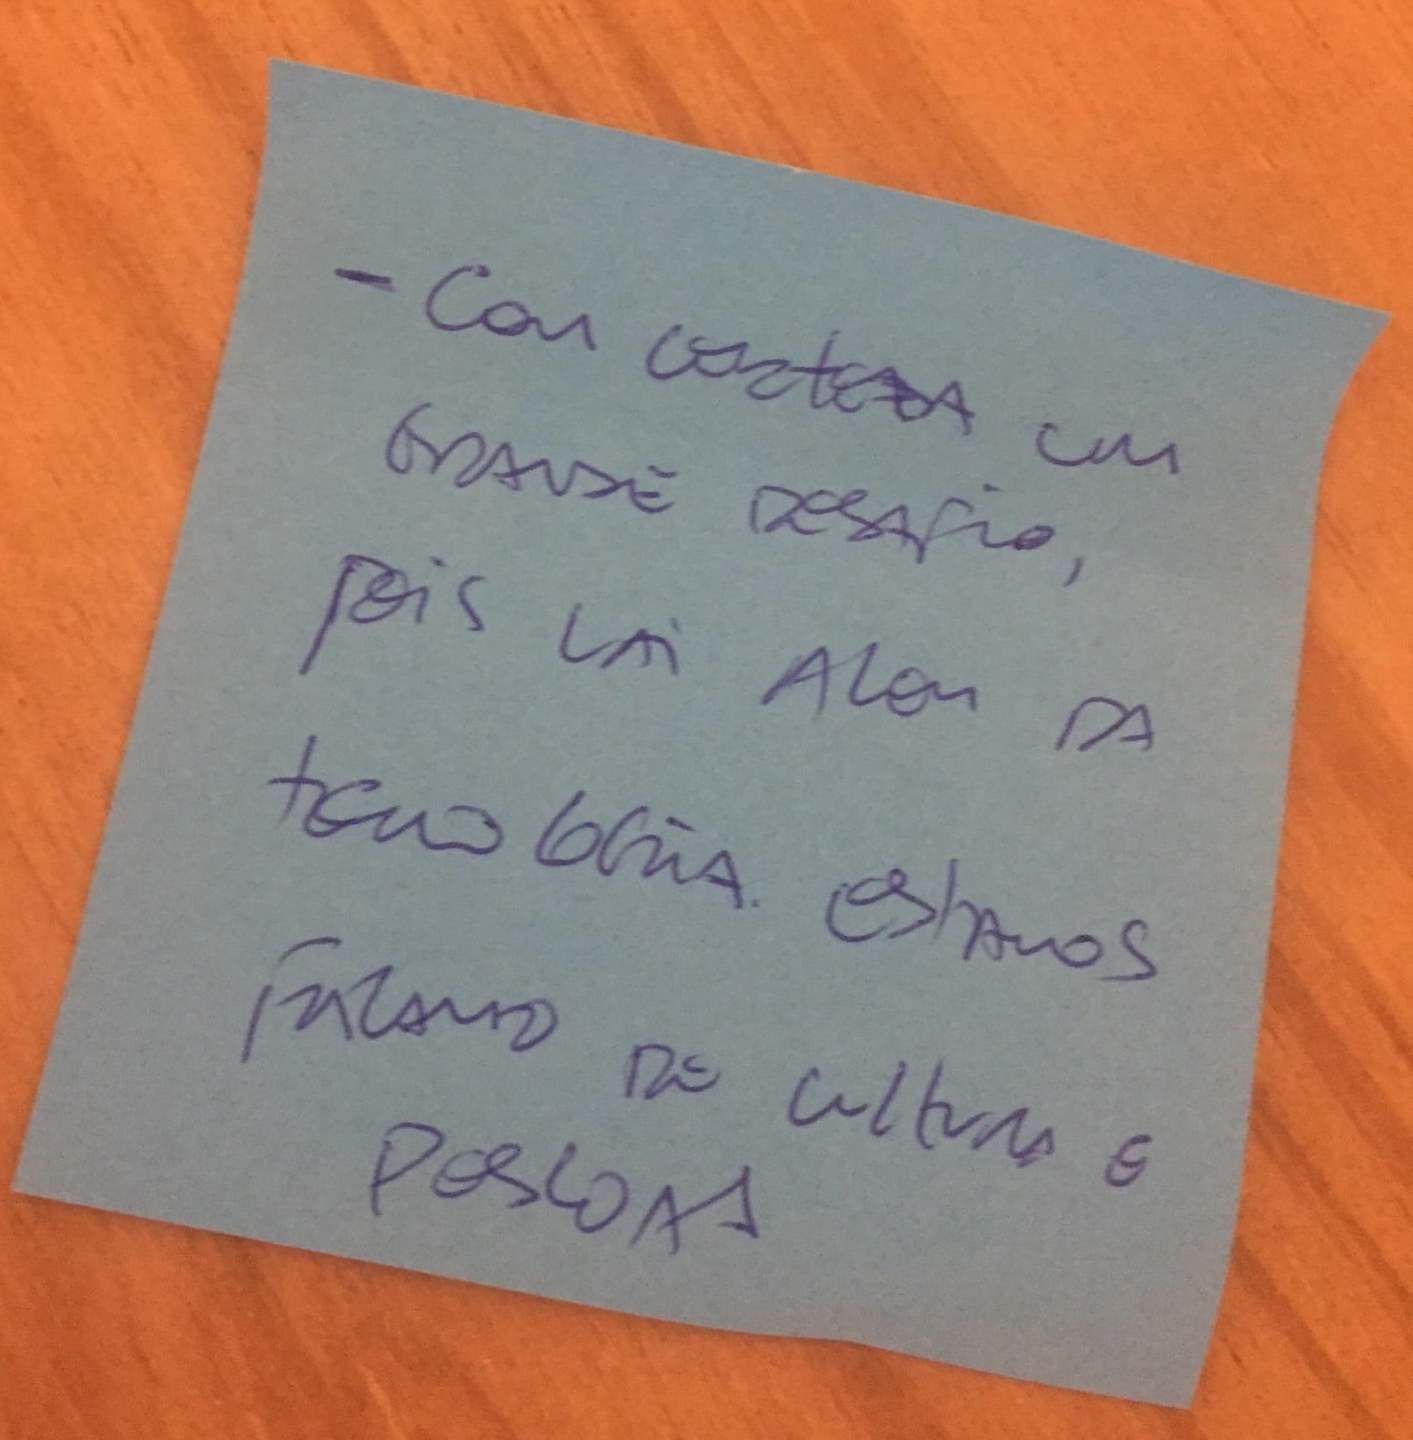 - Com certeza um
GRANDE DESAFIO,
pois vai Alem DA
tecnologia. estamos
FALANDO DE cultura E
PESSOAS